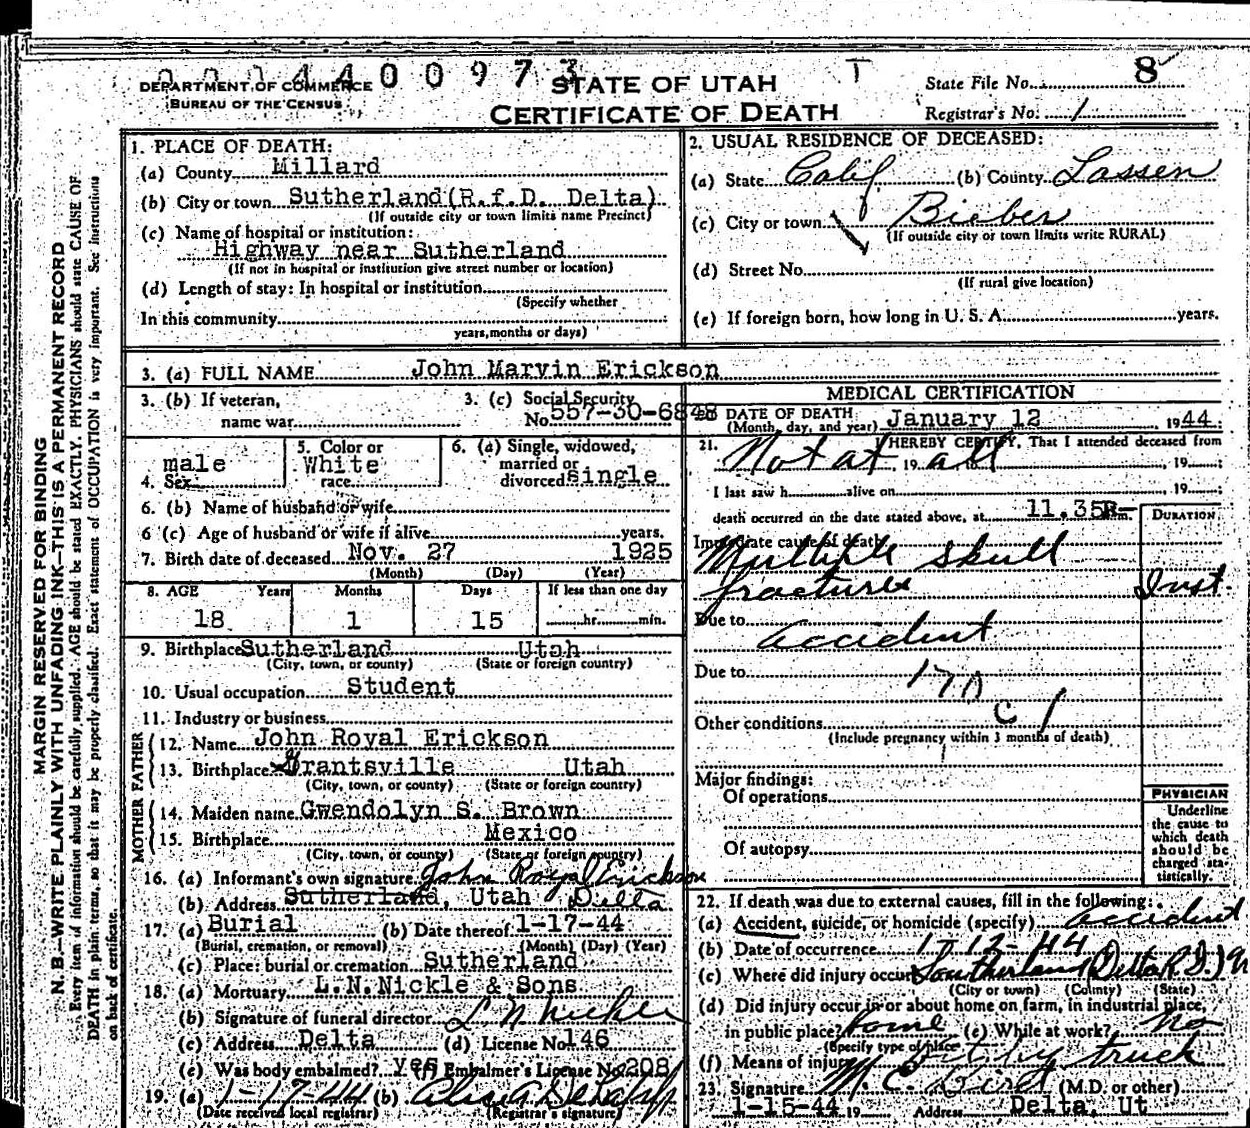 0 0 1 4 4 0 0 9 7 3
DEPARTMENT OF COMMERCE
BUREAU OF THE CENSUS
STATE OF UTAH
CERTIFICATE OF DEATH
T
State File No. 8
Registrar's No. 1
MARGIN RESERVED FOR BINDING
N. B.—WRITE PLAINLY WITH UNFADING INK—THIS IS A PERMANENT RECORD
Every item of information should be carefully supplied. AGE should be stated EXACTLY. PHYSICIANS should state CAUSE OF
DEATH in plain terms, so that it may be properly classified. Exact statement of OCCUPATION is very important. See instructions
on back of certificate.
1. PLACE OF DEATH:
(a) County Millard
(b) City or town Sutherland(R.f.D. Delta)
(If outside city or town limits name Precinct)
(c) Name of hospital or institution:
Highway near Sutherland
(If not in hospital or institution give street number or location)
(d) Length of stay: In hospital or institution
(Specify whether
In this community
years, months or days)
2. USUAL RESIDENCE OF DECEASED:
(a) State Calif (b) County Lassen
(c) City or town Bieber
(If outside city or town limits write RURAL)
(d) Street No.
(If rural give location)
(e) If foreign born, how long in U. S. A. years.
3. (a) FULL NAME John Marvin Erickson
3. (b) If veteran, name war
3. (c) Social Security No. 557-30-6848
4. Sex male
5. Color or race White
6. (a) Single, widowed, married or divorced single
6. (b) Name of husband or wife
6 (c) Age of husband or wife if alive years.
7. Birth date of deceased Nov. 27 1925
(Month) (Day) (Year)
8. AGE Years Months Days If less than one day
18 1 15 hr. min.
9. Birthplace Sutherland Utah
(City, town, or county) (State or foreign country)
10. Usual occupation Student
11. Industry or business
FATHER
12. Name John Royal Erickson
13. Birthplace Grantsville Utah
(City, town, or county) (State or foreign country)
MOTHER
14. Maiden name Gwendolyn S. Brown
15. Birthplace Mexico
(City, town, or county) (State or foreign country)
16. (a) Informant's own signature John Royal Erickson
(b) Address Sutherland, Utah Delta
17. (a) Burial (b) Date thereof 1-17-44
(Burial, cremation, or removal) (Month) (Day) (Year)
(c) Place: burial or cremation Sutherland
18. (a) Mortuary L.N.Nickle & Sons
(b) Signature of funeral director L N Nickle
(c) Address Delta (d) License No. 146
(e) Was body embalmed? yes (f) Embalmer's License No. 208
19. (a) 1-17-44 (b)
(Date received local registrar) (Registrar's signature)
MEDICAL CERTIFICATION
20. DATE OF DEATH January 12 1944
(Month, day, and year)
21. I HEREBY CERTIFY, That I attended deceased from
Not at, 19 all, 19
I last saw h alive on, 19
death occurred on the date stated above, at 11.35 m.
DURATION
Immediate cause of death
Multiple skull
fractures Inst.
Due to accident
Due to 170
c 1
Other conditions
(Include pregnancy within 3 months of death)
Major findings:
Of operations
Of autopsy
PHYSICIAN
Underline
the cause to
which death
should be
charged sta-
tistically.
22. If death was due to external causes, fill in the following:
(a) Accident, suicide, or homicide (specify) accident
(b) Date of occurrence 1-12-44
(c) Where did injury occur Southerland (Delta R.D.)
(City or town) (County) (State)
(d) Did injury occur in or about home on farm, in industrial place,
in public place? home (e) While at work? no
(Specify type of place)
(f) Means of injury Hit by truck
23. Signature M. C. Bird (M.D. or other)
1-15-44 19 Address Delta, Ut